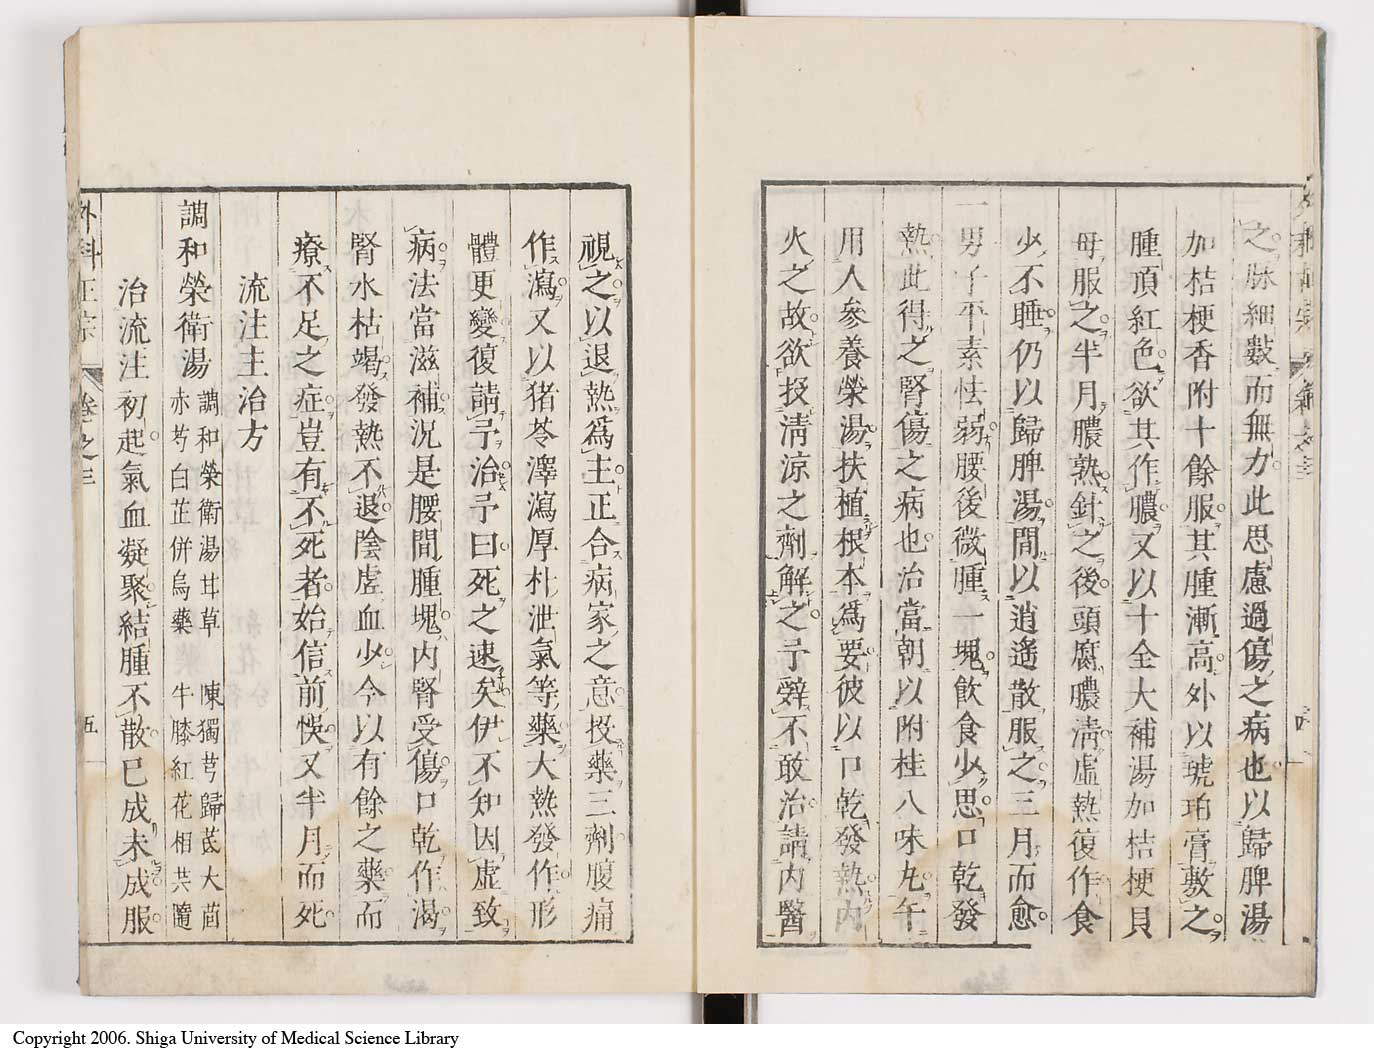 之脉細數而無力此思慮過傷之病也以歸脾湯
加桔梗香附十餘服其腫漸高外以琥珀膏敷之
腫頂紅色欲其作膿又以十全大補湯加桔梗貝
母服之半月膿熟針之後頭腐膿淸虛熱復作食
少不睡仍以歸脾湯間以逍遙散服之三月而愈
一男子平素怯弱腰後微腫一塊飲食少思口乾發
熱此得之腎傷之病也治當朝以附桂八味丸午
用人參養榮湯扶植根本爲要彼以口乾發熱內
火之故欲投淸涼之劑解之予辭不敢治請內醫
視之以退熱爲主正合病家之意投藥三劑腹痛
作瀉又以猪苓澤瀉厚朴泄氣等藥大熱發作形
體更變復請予治予曰死之速矣伊不知因虛致
病法當滋補況是腰間腫塊內腎受傷口乾作渴
腎水枯竭發熱不退陰虛血少今以有餘之藥而
療不足之症豈有不死者始信前悞又半月而死
流注主治方
調和榮衛湯
調和榮衛湯甘草 陳獨芎歸芪大茴
赤芍白芷併烏藥 牛膝紅花相共隨
治流注初起氣血凝聚結腫不散已成未成服
外科正宗 卷之三 五
Copyright 2006. Shiga University of Medical Science Library